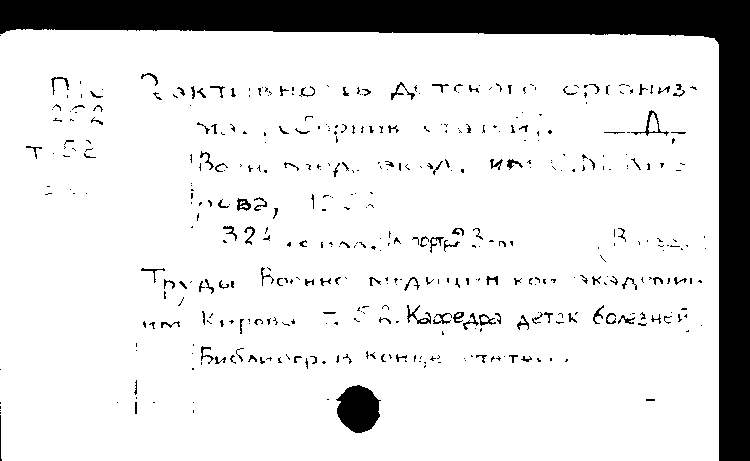 П/с Реактивность детского организ-
252 ма. [Сборник статей]. Л.,
т. 52 Воен. мед. акад. им С.М. Киро
рова, 1952
324 с илл. 1 л. портр. 23 см
Труды Военно медицинской академии
им Кирова т. 52. Кафедра детск болезней
Библиогр. в конце статей.